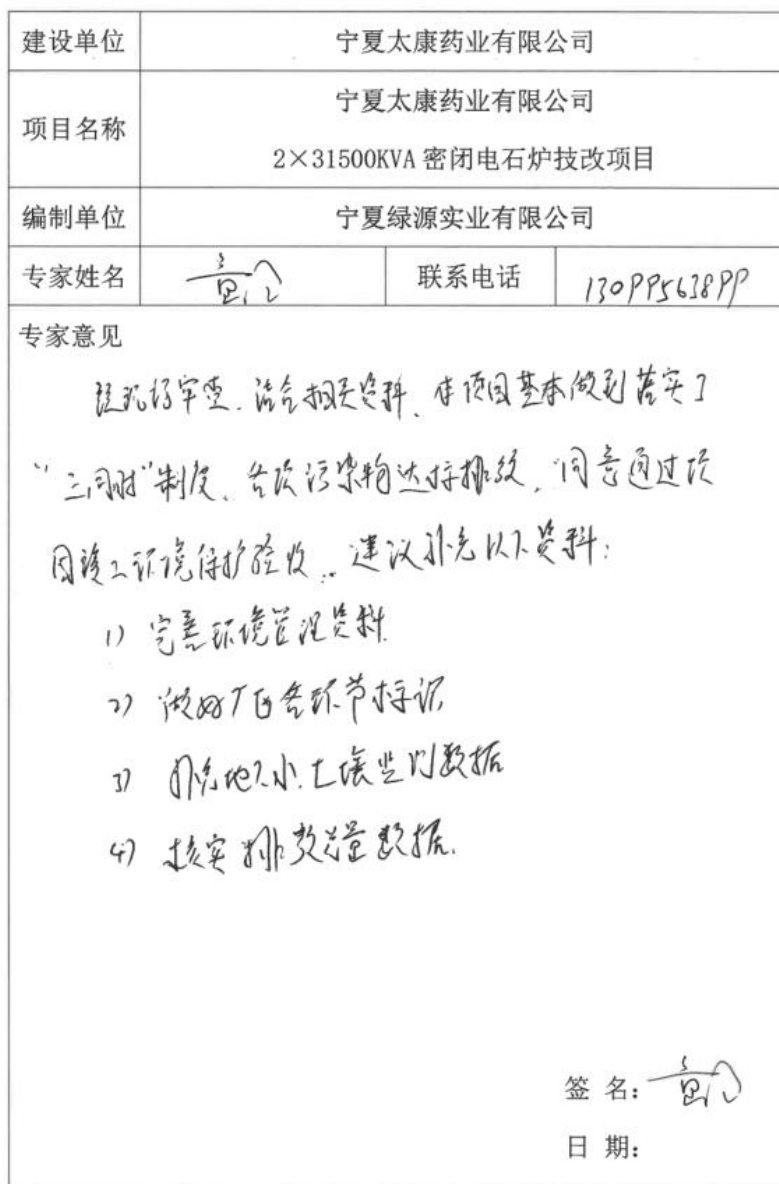 建设单位 宁夏太康药业有限公司
项目名称 宁夏太康药业有限公司
2×31500KVA 密闭电石炉技改项目
编制单位 宁夏绿源实业有限公司
专家姓名 联系电话 13099563899
专家意见
经现场审查、结合相关资料、本项目基本做到落实了
“三同时”制度、各项污染物达标排放，同意通过该项
目竣工环境保护验收。建议补充以下资料：
1) 完善环境管理资料
2) 做好厂区各环节标识
3) 补充地下水、土壤监测数据
4) 核实排放总量数据.
签 名：
日 期：